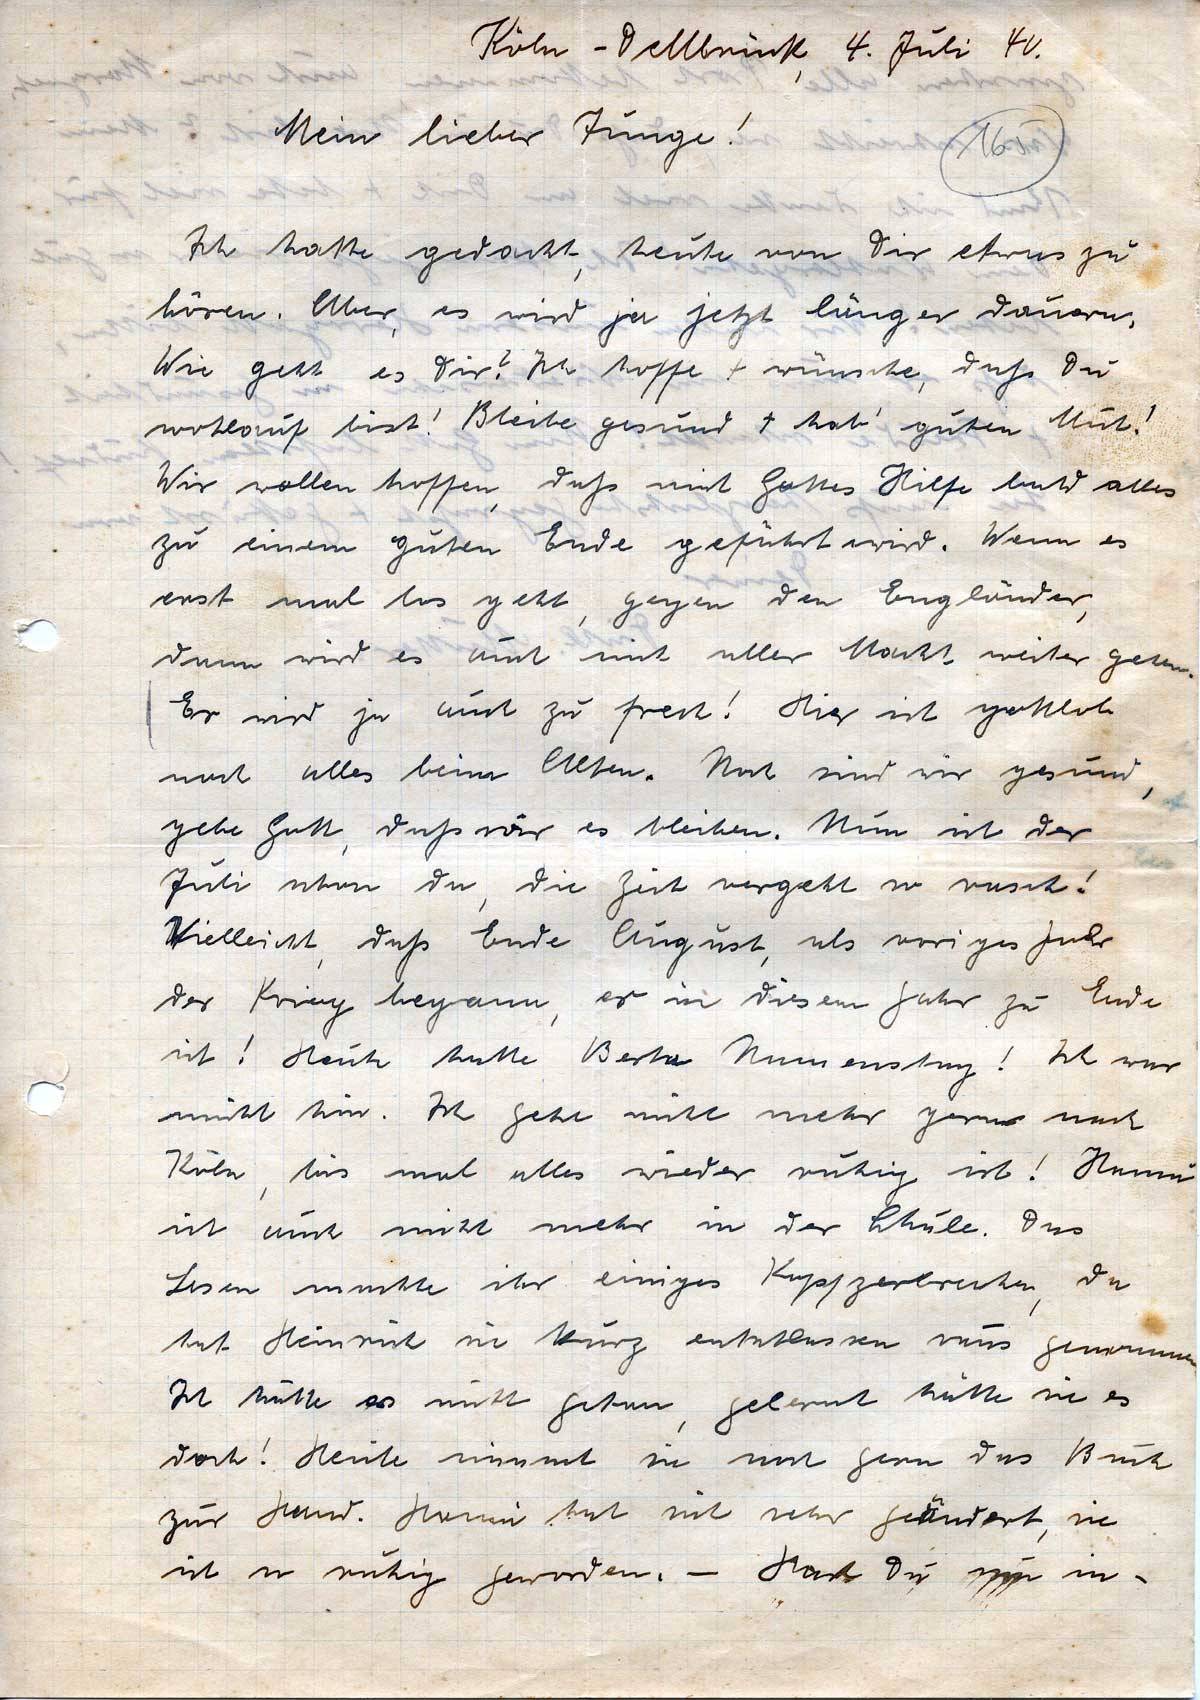 Köln-Dellbrück, 4. Juli 40.
Mein lieber Junge!
165
Ich hatte gedacht, heute von Dir etwas zu
hören. Aber, es wird ja jetzt länger dauern.
Wie geht es Dir? Ich hoffe + wünsche, daß Du
wohlauf bist! Bleibe gesund + hab' guten Mut!
Wir wollen hoffen, daß mit Gottes Hilfe bald alles
zu einem guten Ende geführt wird. Wenn es
erst mal los geht, gegen den Engländer,
dann wird es auch mit aller Macht weiter gehen.
Er wird ja auch zu frech! Hier ist gottlob
noch alles beim Alten. Noch sind wir gesund,
gebe Gott, daß wir es bleiben. Nun ist der
Juli schon da, die Zeit vergeht so rasch!
Vielleicht, daß Ende August, als voriges Jahr
der Krieg begann, er in diesem Jahr zu Ende
ist! Heute hatte Berta Namenstag! Ich war
nicht hin. Ich gehe nicht mehr gerne nach
Köln, bis mal alles wieder ruhig ist! Hanni
ist auch nicht mehr in der Schule. Das
Lesen machte ihr einiges Kopfzerbrechen, da
hat Heinrich sie kurz entschlossen raus genommen
Ich hätte es nicht getan, gelernt hätte sie es
doch! Heute nimmt sie noch gern das Buch
zur Hand. Hanni hat sich sehr geändert, sie
ist so ruhig geworden. – Hast Du in-